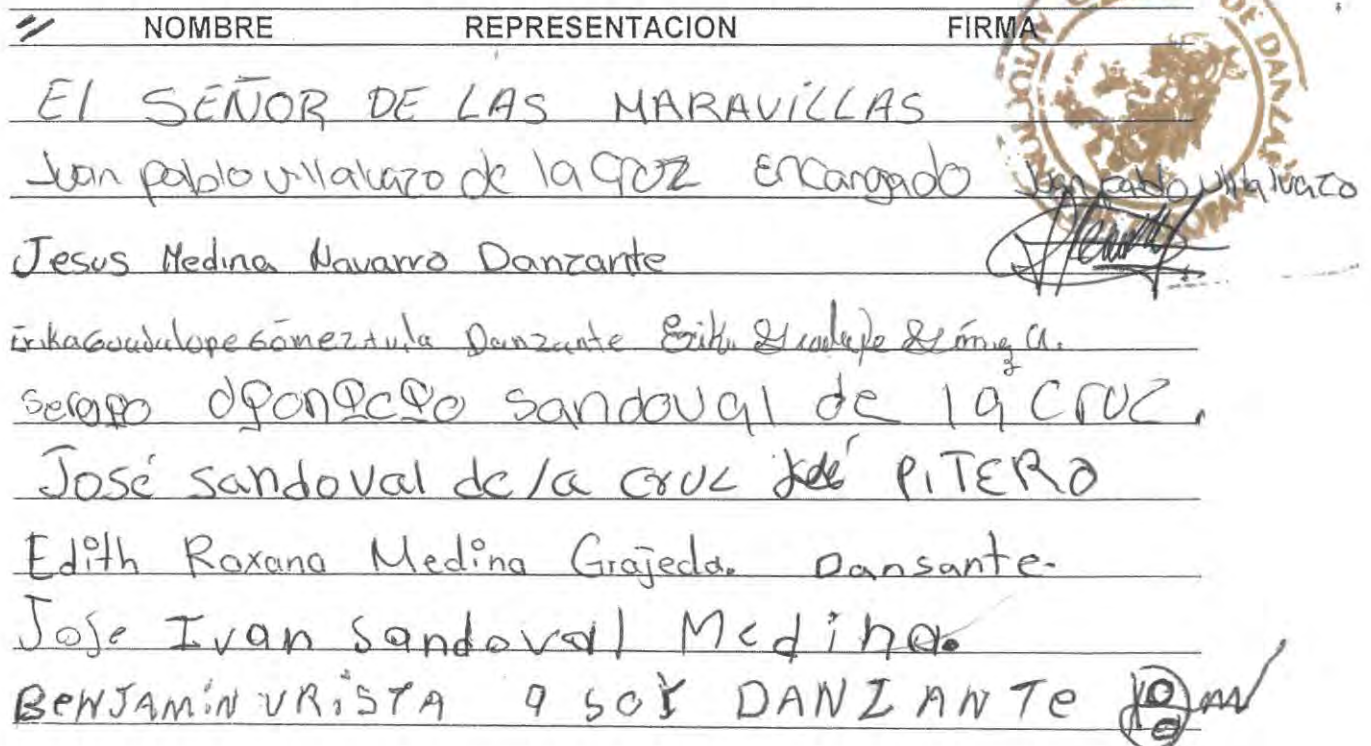 NOMBRE REPRESENTACION FIRMA
El SEÑOR DE LAS MARAVILLAS
Juan pablo villalvazo de la Croz Encargado Juan pablo villalvazo
Jesus Medina Navarro Danzante
Erika Guadalupe Gómez Danzante Erika Guadalupe Gómez A.
Sandoval de la Cruz.
José Sandoval de la Cruz José PITERO
Edith Roxana Medina Grajeda. Dansante.
Jose Ivan Sandoval Medina.
BENJAMiN URiSTA A SOY DANZANTe